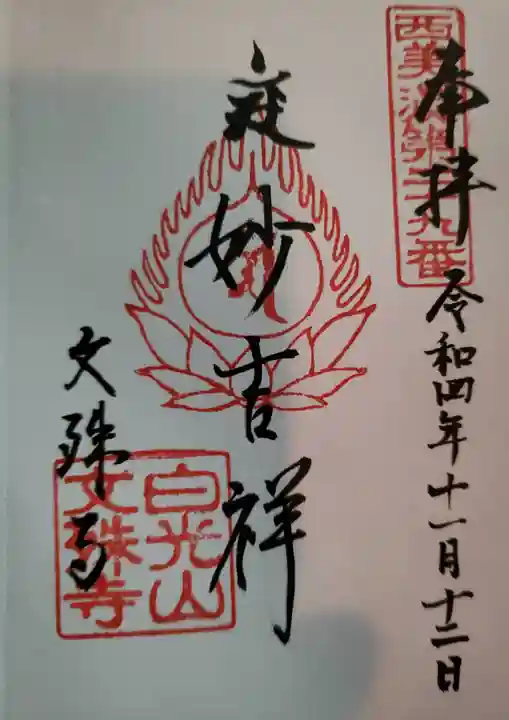 西美濃第二十九番
奉拝
令和四年十一月十二日
妙吉祥
文殊寺
白光山
文殊寺